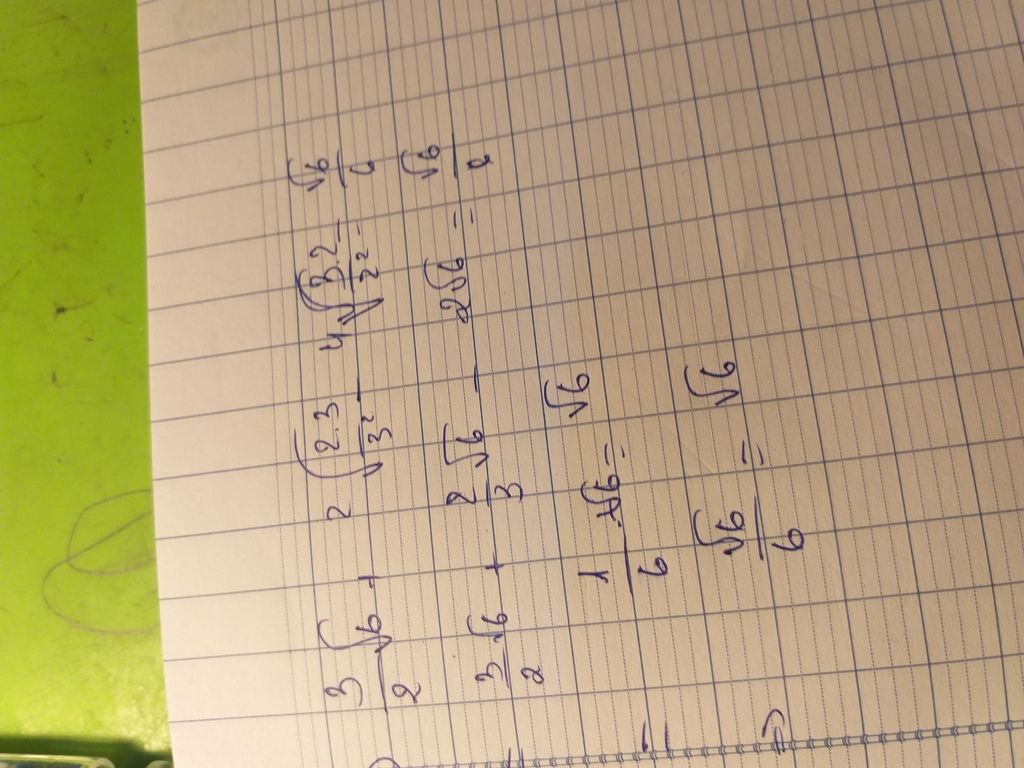 3/2 √6 + 2 √(2.3/3²) - 4√(3.2/2²) = √6/6
= 3/2 √6 + 2/3 √6 - 2√6 = √6/6
= 1/6 . √6 = √6
⇒ √6/6 = √6